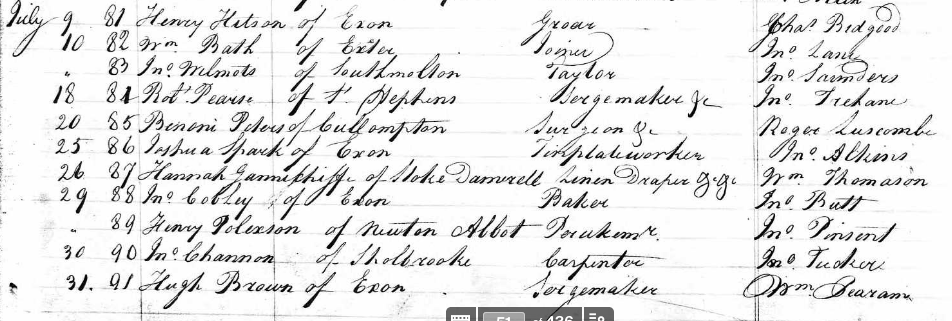 July 9 81 Henry Hitson of Exon Grocer Chas Bidgood
10 82 Wm Bath of Exter Joiner Jno Lane
" 83 Jno Wilmots of Southmolton Taylor Jno Saunders
18 84 Robt Pearse of St Stephens Sergemaker &c Jno Trehane
20 85 Benoni Peters of Cullompton Surgeon &c Roger Luscombe
25 86 Joshua Spark of Exon Tinplateworker Jno Atkins
26 87 Hannah of Stoke Damerell Linen Draper &c &c Wm Thomason
29 88 Jno Cobley of Exon Baker Jno Butt
" 89 Henry Polexson of Newton Abbot Perukemr. Jno Pinsent
30 90 Jno Channon of Sholbrooke Carpenter Jno Tucker
31. 91 Hugh Brown of Exon Sergemaker Wm
51 of 436